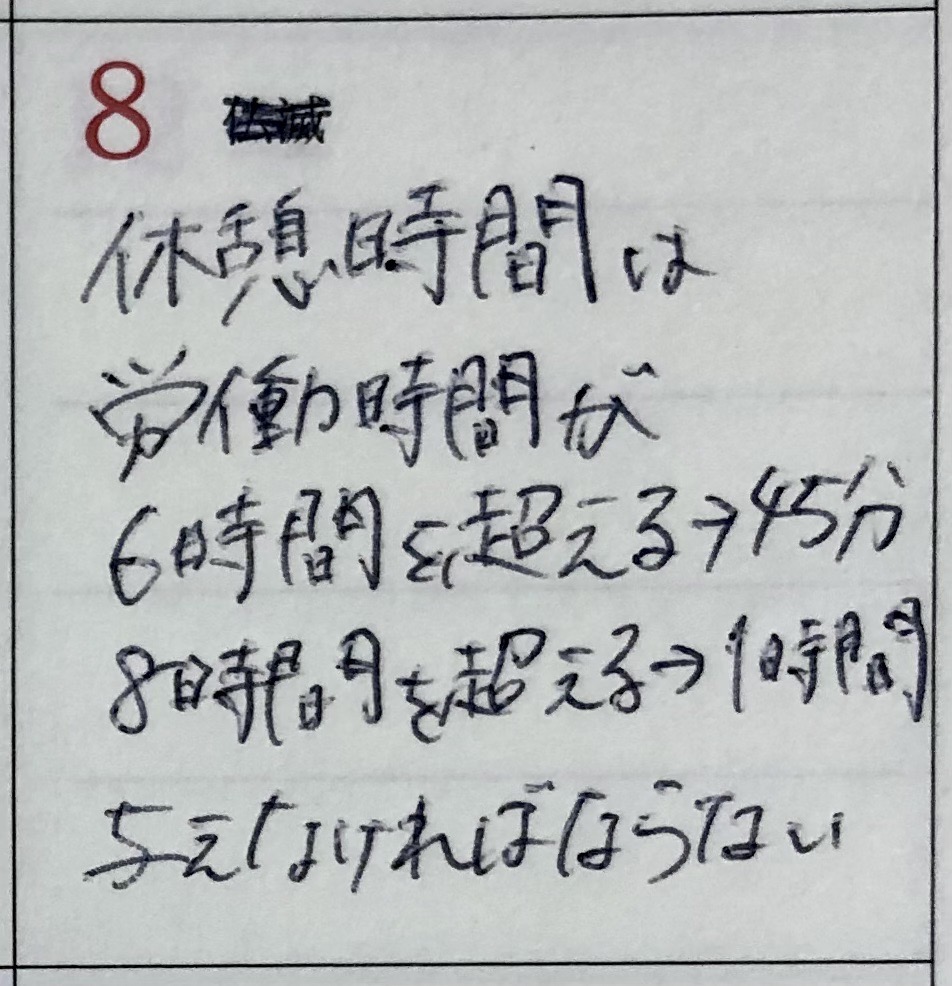 8
休憩時間は
労働時間が
6時間を超える→45分
8時間を超える→1時間
与えなければならない